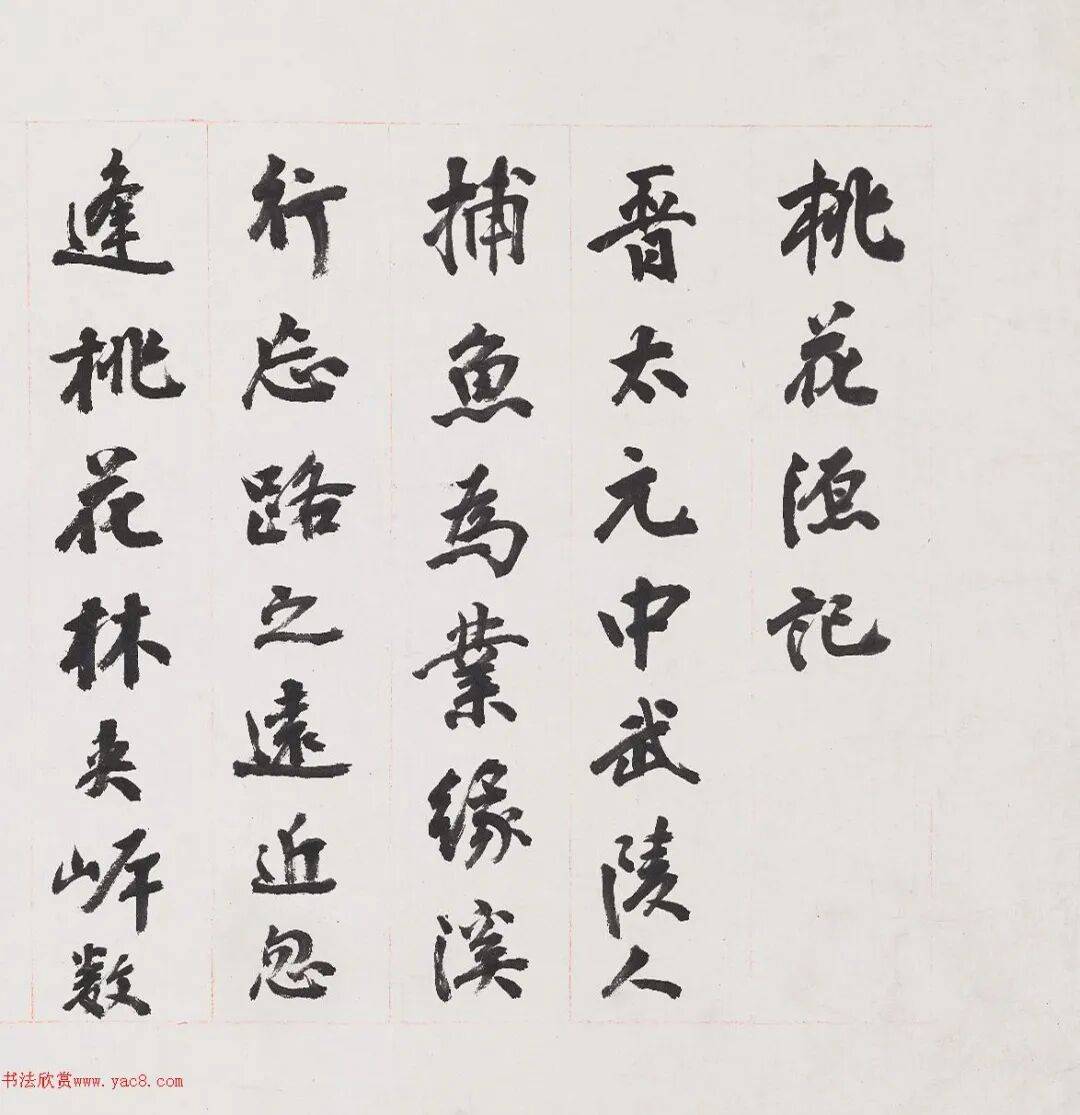 桃花源記
晋太元中武陵人
捕魚為業緣溪
行忘路之遠近忽
逢桃花林夾岸数
书法欣赏www.yac8.com